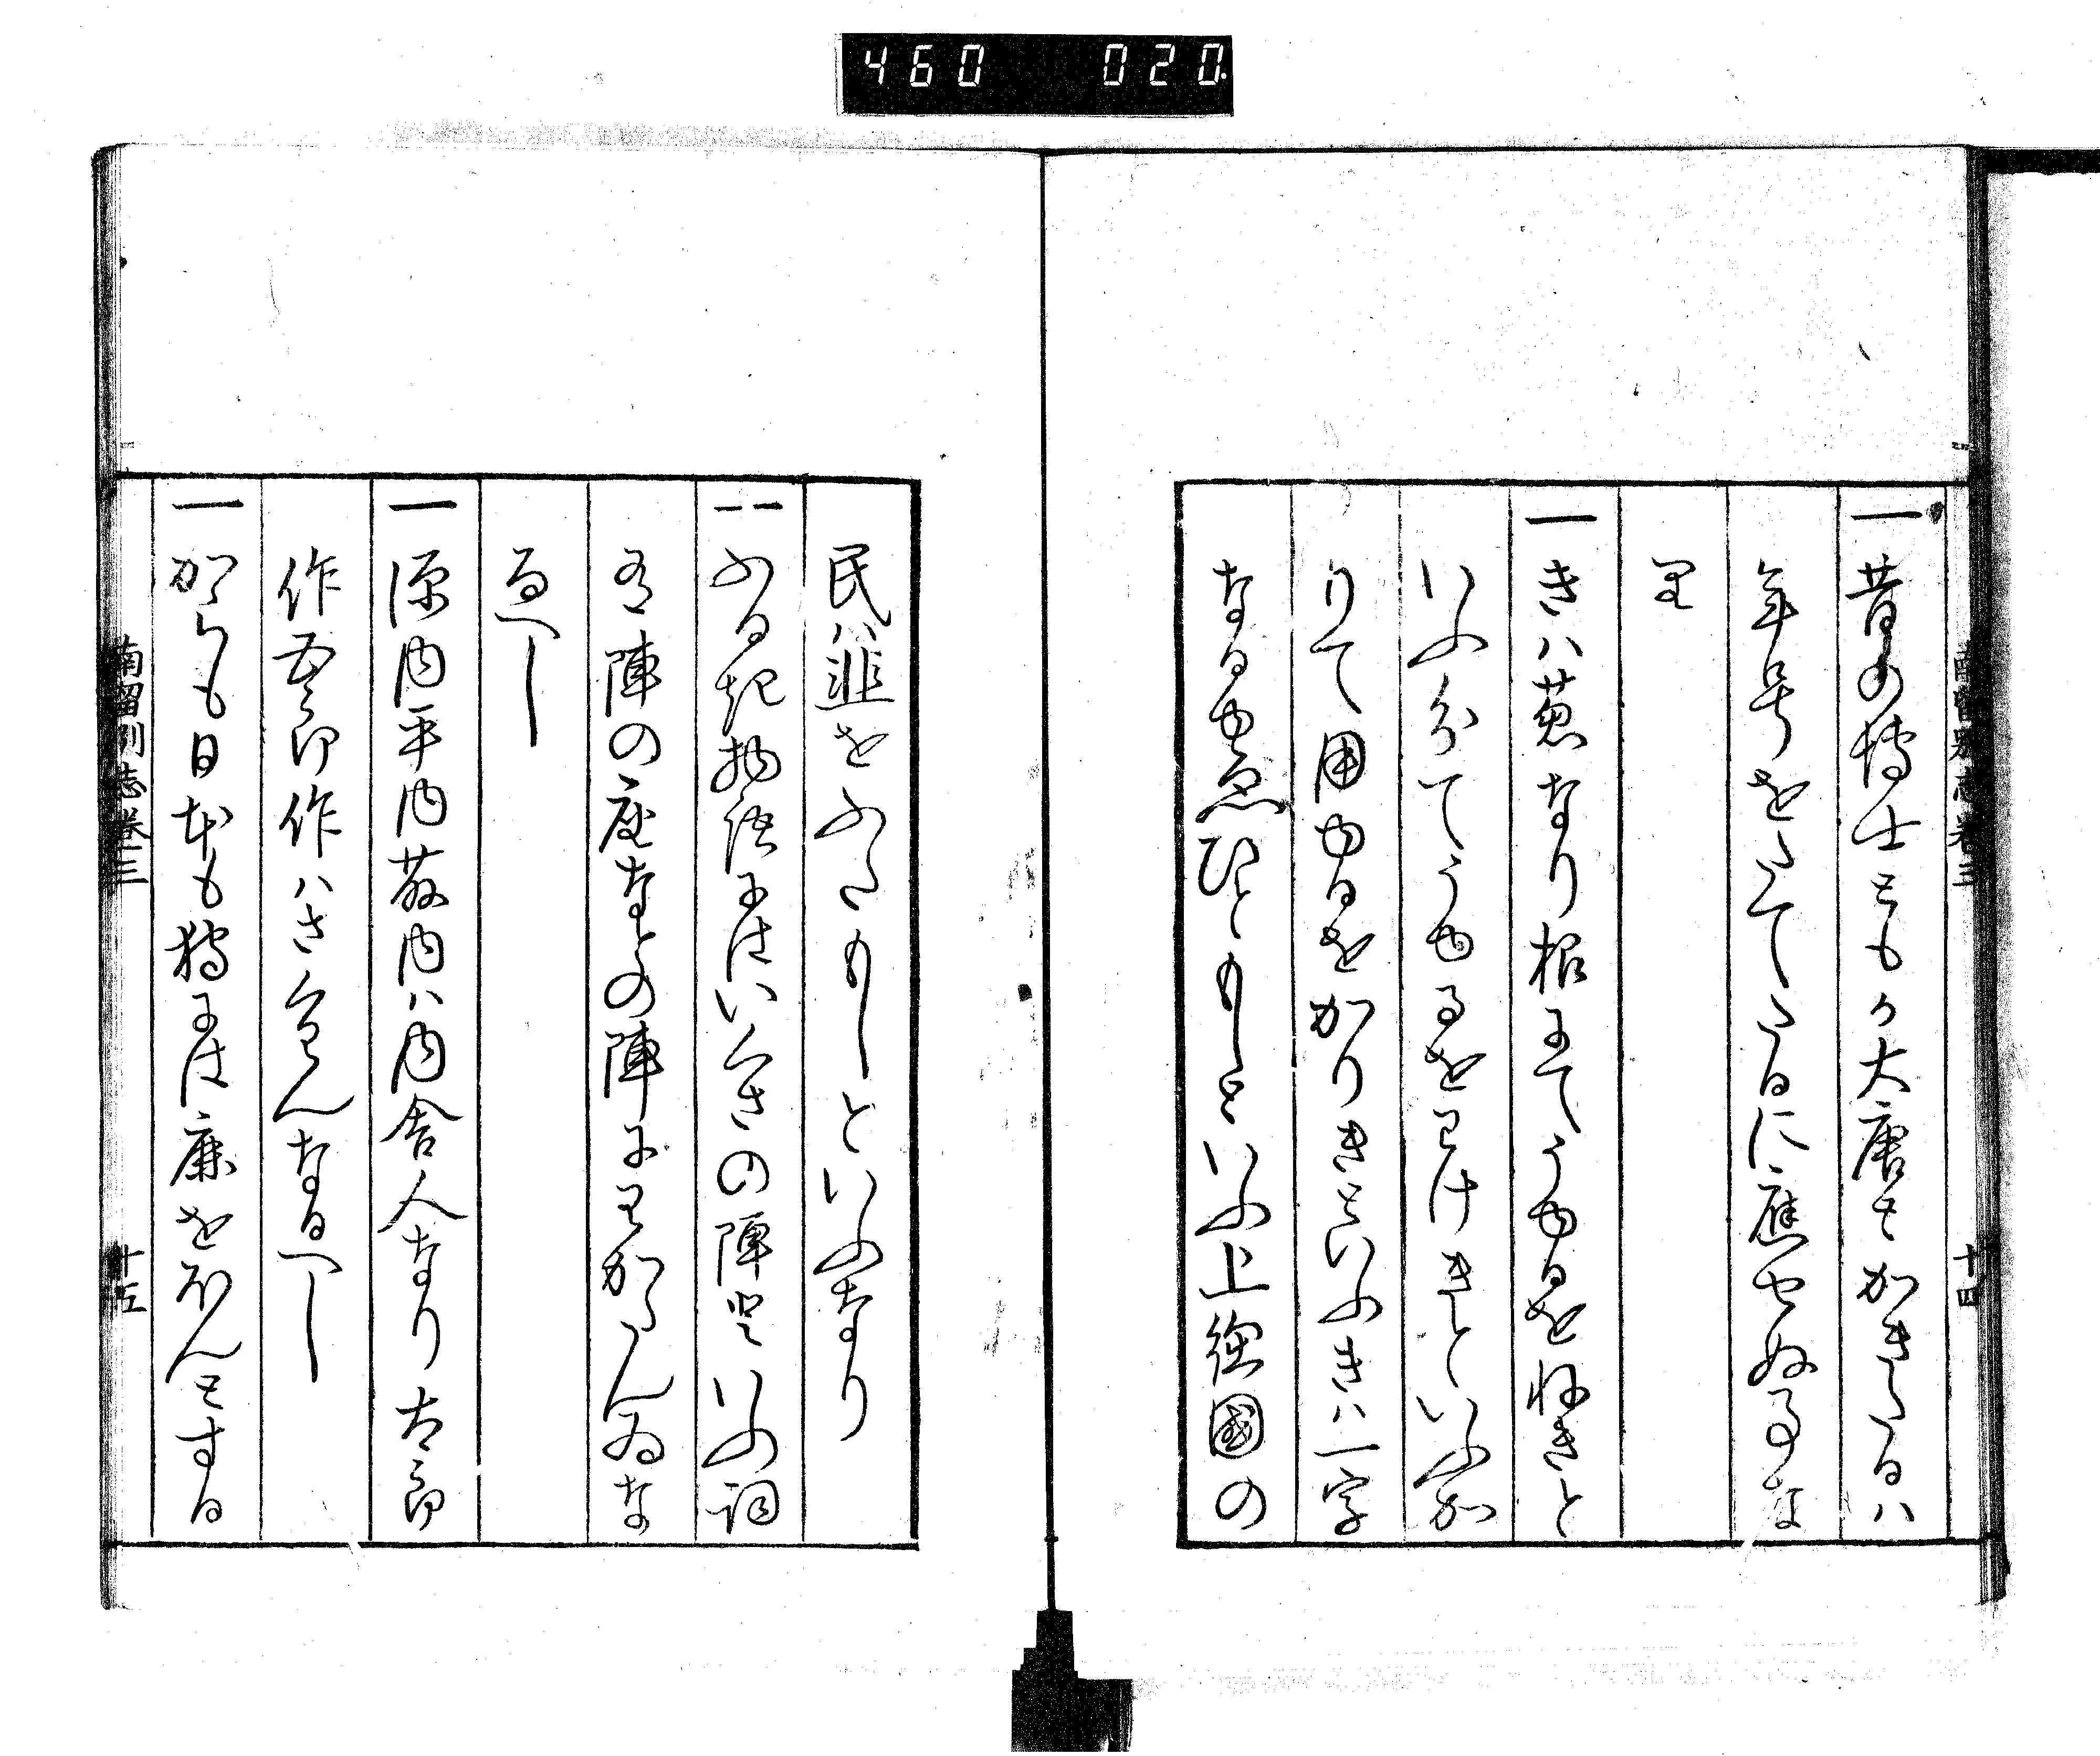 460 020
南留別志巻三 十四
一昔の博士ともか大唐とかきたるハ
年号をたてたるに應せぬ事な
り
一きハ葱なり根にてうゆるをねきと
いふ分てうゆるをわけきといふか
りて用ゆるをかりきといふきハ一字
なるゆゑひともしといふ上総國の
民ハ韮をふたもしといふなり
一ふるき物語にはいくさの陣といふ詞
なし陣の座なとの陣にわかたんゐな
るへし
一源内平内藤内ハ内舎人なり太郎
作五郎作ハさくわんなるへし
一からも日本も狩には鹿をほんとする
南留別志巻三 十五